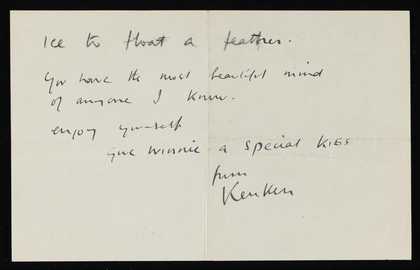 Ice to float a feather.
You have the most beautiful mind
of anyone I know.
enjoy yourself
give Winnie a special kiss
from
Kenken